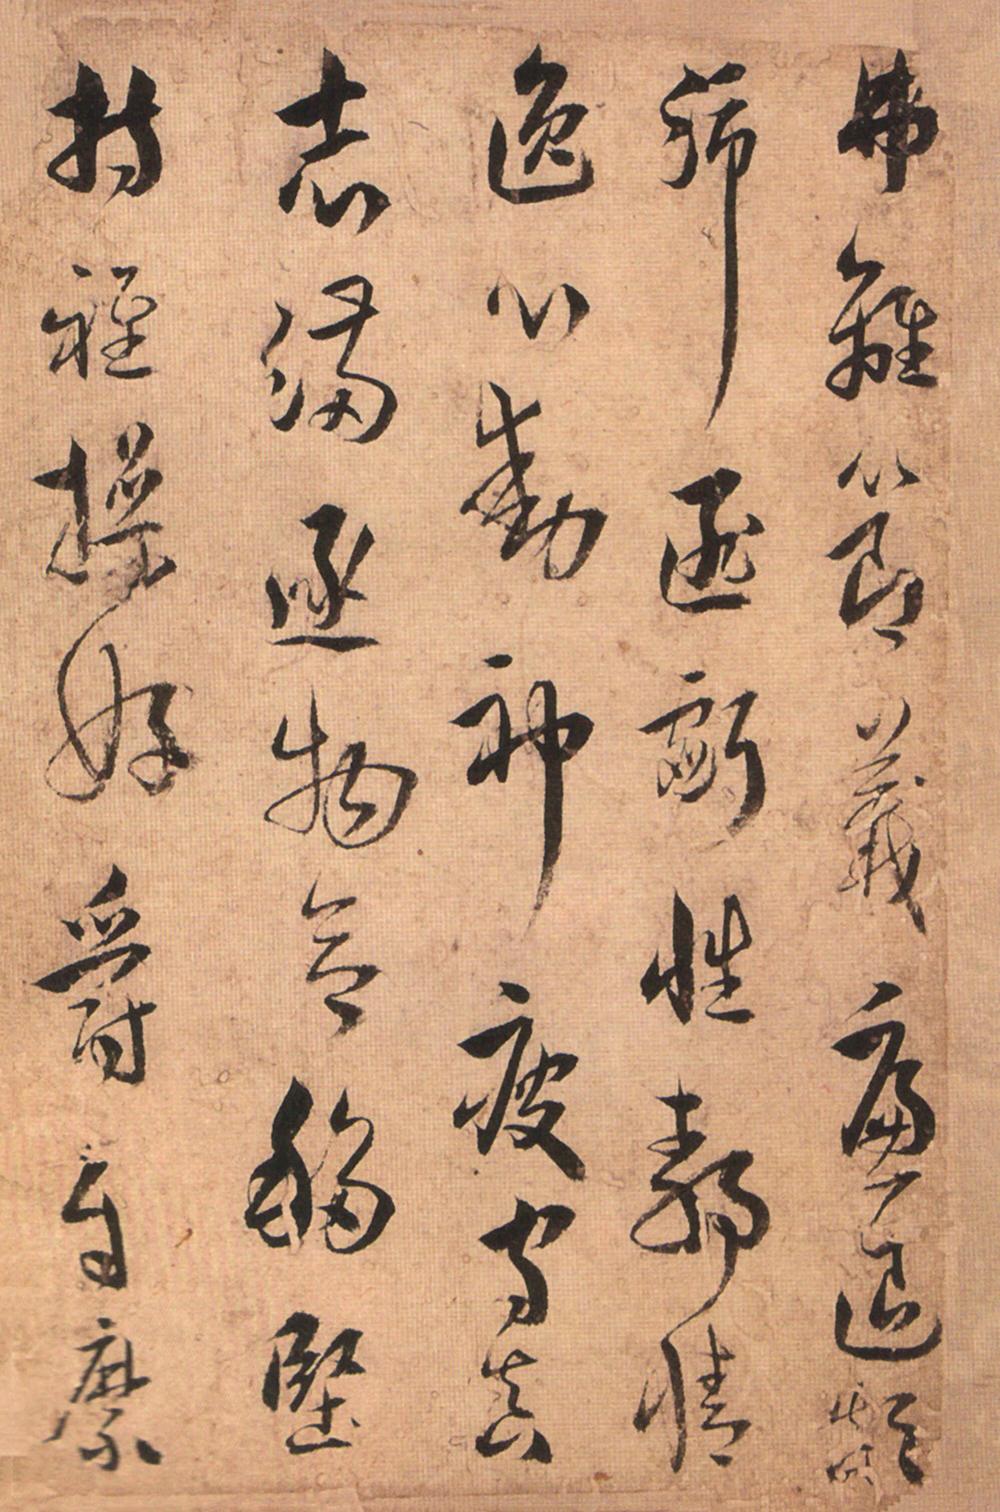 弗離節義廉退顛
沛匪虧性靜情
逸心動神疲守真
志滿逐物意移堅
持雅操好爵自縻